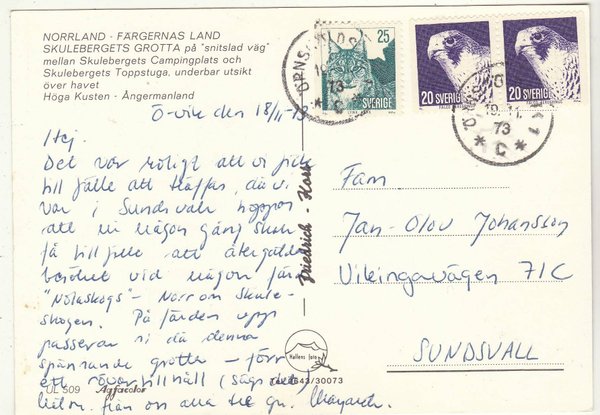 NORRLAND - FÄRGERNAS LAND
SKULEBERGETS GROTTA på "snitslad väg"
mellan Skulebergets Campingplats och
Skulebergets Toppstuga, underbar utsikt
över havet
Höga Kusten - Ångermanland
25
SVERIGE
20 SVERIGE
20 SVERIGE
73
C
19.11.
73
* C *
Ö-vik den 18/11-73
Hej.
Det var roligt att vi fick
tillfälle att träffas, då vi
var i Sundsvall hoppas
att ni någon gång skall
få tillfälle att återgälda
besöket vid någon färd
"Nolaskogs" - Norr om Skule-
skogen. På färden upp
passerar ni då denna
spännande grotta - förr
ett rövartillhåll (sägs det)
från oss alla tre gm. Margareta
Fam
Jan-Olov Johansson
Vikingavägen 71C
SUNDSVALL
Friedrich - Karte
Hallens foto
UL 509
Agfacolor
/30073